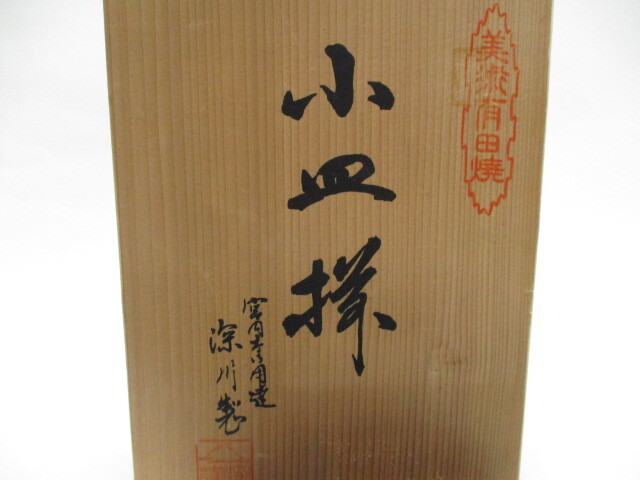 美術有田焼
小皿揃
宮内庁御用達
深川製